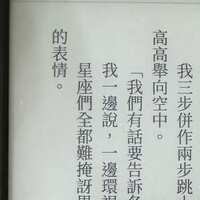 我三步併作兩步跳
高高舉向空中。
「我們有話要告訴
我一邊說，一邊環
星座們全都難掩訝
的表情。